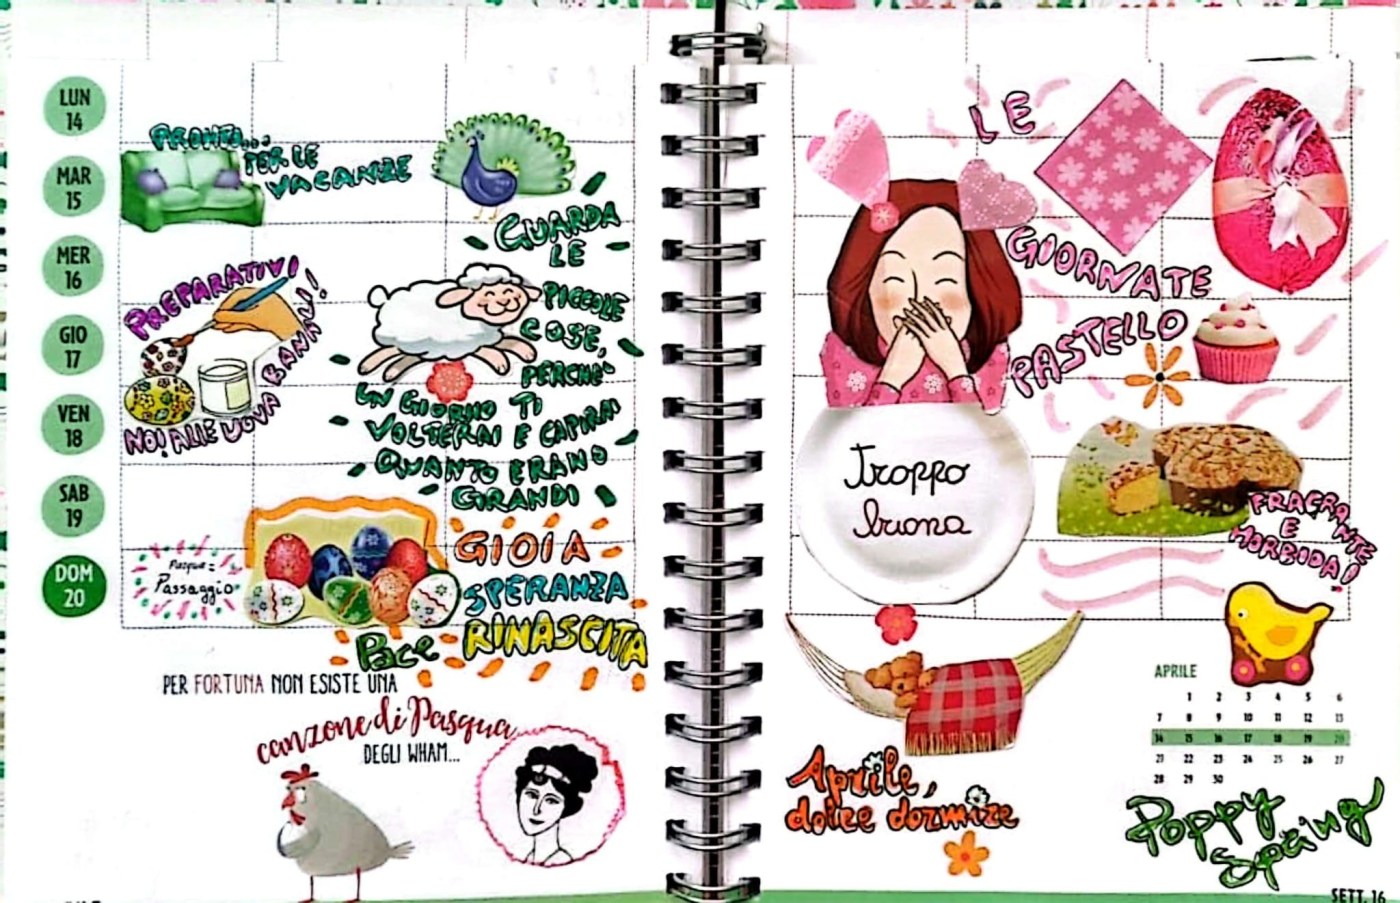 LUN
14
MAR
15
MER
16
GIO
17
VEN
18
SAB
19
DOM
20
PRONTO...
PER LE
VACANZE
GUARDA
LE
PICCOLE
COSE,
PERCHE'
UN GIORNO TI
VOLTERAI E CAPIRAI
QUANTO ERANO
GRANDI
PREPARATIVI
NO! ALLE UOVA
BANNATI!
Pasqua =
Passaggio
GIOIA
SPERANZA
RINASCITA
Pace
PER FORTUNA NON ESISTE UNA
canzone di Pasqua
DEGLI WHAM...
LE
GIORNATE
PASTELLO
Troppo
buona
FRAGRANTE
E
MORBIDA!
Aprile,
dolce dormire
APRILE
1 2 3 4 5 6
7 8 9 10 11 12 13
14 15 16 17 18 19 20
21 22 23 24 25 26 27
28 29 30
Poppy
Spring
SETT. 16